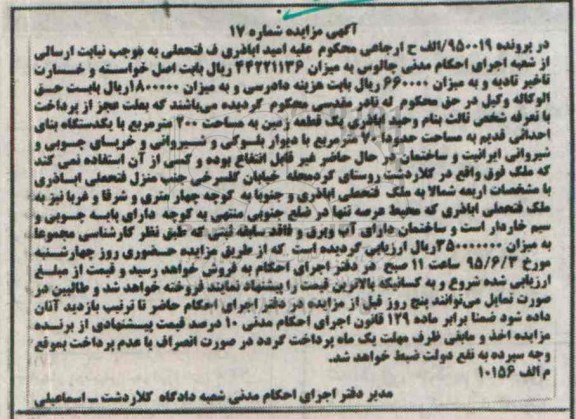 آگهی مزایده شماره ۱۷
در پرونده ۹۵۰۰۱۹/الف ح ارجاعی محکوم علیه امید اباذری ف فتحعلی به موجب نیابت ارسالی
از شعبه اجرای احکام مدنی چالوس به میزان ۴۴۲۲۱۱۳۶ ریال بابت اصل خواسته و خسارت
تاخیر تادیه و به میزان ۶۶۰۰۰۰ ریال بابت هزینه دادرسی و به میزان ۱۸۰۰۰۰۰ریال بابت حق
الوکاله وکیل در حق محکوم له نادر مقدسی محکوم گردیده می‌باشند که بعلت عجز از پرداخت
با تعرفه شخص ثالث بنام وحید اباذری یک قطعه زمین به مساحت ۲۰۰ مترمربع با یکدستگاه بنای
احداثی قدیم به مساحت حدود ۷۰ مترمربع با دیوار بلوکی و شیروانی و خرپای چوبی و
شیروانی ایرانیت و ساختمان در حال حاضر غیر قابل انتفاع بوده و کسی از آن استفاده نمی کند
که ملک فوق واقع در کلاردشت روستای کردمحله خیابان گلسرخی جنب منزل فتحعلی اباذری
با مشخصات اربعه شمالا به ملک فتحعلی اباذری و جنوبا به کوچه چهار متری و شرقا و غربا نیز به
ملک فتحعلی اباذری که محیط عرصه تنها در ضلع جنوبی منتهی به کوچه دارای پایه چوبی و
سیم خاردار است و ساختمان دارای آب وبرق و فاقد سابقه ثبتی که طبق نظر کارشناسی مجموعا
به میزان ۳۵۰۰۰۰۰۰۰ریال ارزیابی گردیده است که از طریق مزایده حضوری روز چهارشنبه
مورخ ۹۵/۶/۳ ساعت ۱۱ صبح در دفتر اجرای احکام به فروش خواهد رسید و قیمت از مبلغ
ارزیابی شده شروع و به کسانیکه بالاترین قیمت را پیشنهاد نمایند فروخته خواهد شد و طالبین در
صورت تمایل می‌توانند پنج روز قبل از مزایده در دفتر اجرای احکام حاضر تا ترتیب بازدید آنان
داده شود ضمنا برابر ماده ۱۲۹ قانون اجرای احکام مدنی ۱۰ درصد قیمت پیشنهادی از برنده
مزایده اخذ و مابقی ظرف مهلت یک ماه پرداخت گردد در صورت انصراف یا عدم پرداخت بموقع
وجه سپرده به نفع دولت ضبط خواهد شد.
م الف ۱۰۱۵۶
مدیر دفتر اجرای احکام مدنی شعبه دادگاه کلاردشت ــ اسماعیلی